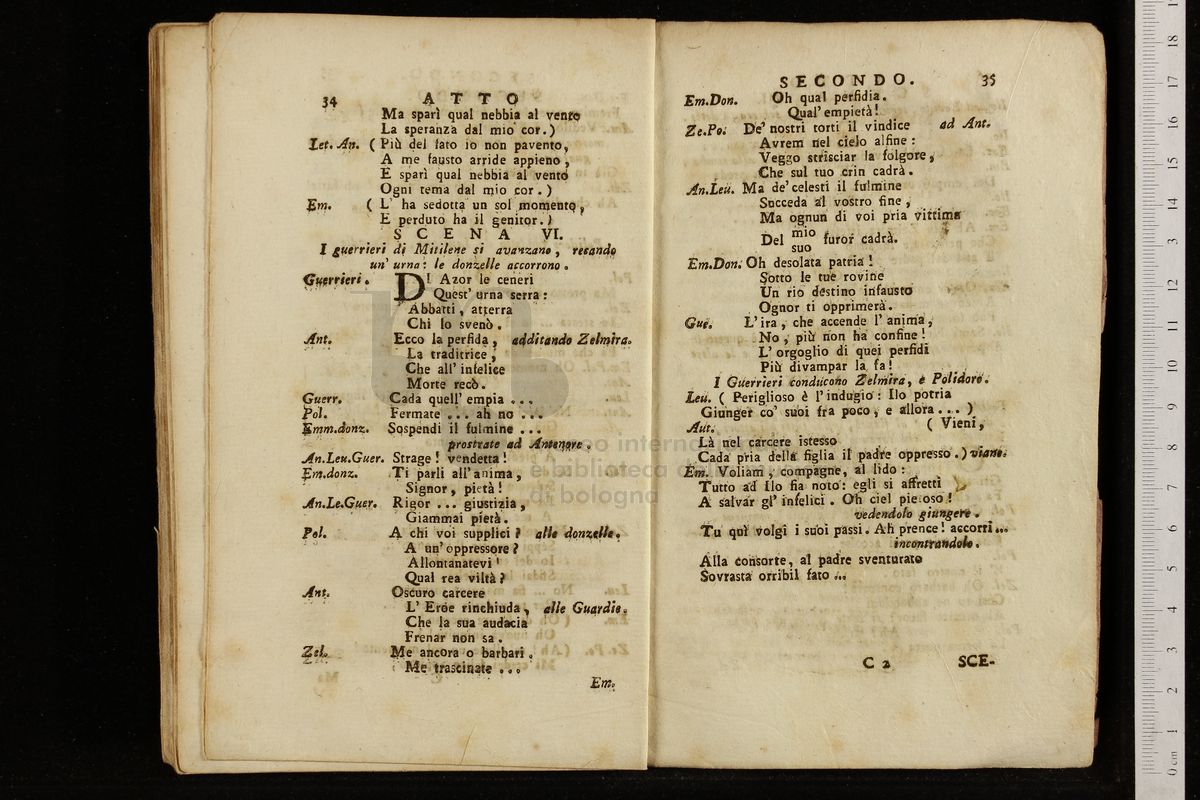 34 ATTO
Ma sparì qual nebbia al vento
La speranza dal mio cor.)
Let. An. (Più del fato io non pavento,
A me fausto arride appieno,
E sparì qual nebbia al vento
Ogni tema dal mio cor.)
Em. (L' ha sedotta un sol momento,
E perduto ha il genitor.)
SCENA VI.
I guerrieri di Mitilene si avanzano, recando
un' urna: le donzelle accorrono.
Guerrieri. DI Azor le ceneri
Quest' urna serra:
Abbatti, atterra
Chi lo svenò.
Ant. Ecco la perfida, additando Zelmira.
La traditrice,
Che all' infelice
Morte recò.
Guerr. Cada quell' empia ...
Pol. Fermate ... ah no ...
Emm.donz. Sospendi il fulmine ...
prostrate ad Antenore.
An.Leu.Guer. Strage! vendetta!
Em.donz. Ti parli all' anima,
Signor, pietà!
An.Le.Guer. Rigor ... giustizia,
Giammai pietà.
Pol. A chi voi supplici? alle donzelle.
A un' oppressore?
Allontanatevi!
Qual rea viltà?
Ant. Oscuro carcere
L' Eroe rinchiuda, alle Guardie.
Che la sua audacia
Frenar non sa.
Zel. Me ancora o barbari.
Me trascinate ...
Em.
SECONDO. 35
Em.Don. Oh qual perfidia.
Qual' empietà!
Ze.Po. De' nostri torti il vindice ad Ant.
Avrem nel cielo alfine:
Veggo strisciar la folgore,
Che sul tuo crin cadrà.
An.Leu. Ma de' celesti il fulmine
Succeda al vostro fine,
Ma ognun di voi pria vittima
Del mio furor cadrà.
suo
Em.Don. Oh desolata patria!
Sotto le tue rovine
Un rio destino infausto
Ognor ti opprimerà.
Gue. L' ira, che accende l' anima,
No, più non ha confine!
L' orgoglio di quei perfidi
Più divampar la fa!
I Guerrieri conducono Zelmira, e Polidoro.
Leu. (Periglioso è l' indugio: Ilo potria
Giunger co' suoi fra poco, e allora ...)
Aut. (Vieni,
Là nel carcere istesso
Cada pria della figlia il padre oppresso.) viano.
Em. Voliam, compagne, al lido:
Tutto ad Ilo fia noto: egli si affretti
A salvar gl' infelici. Oh ciel pietoso!
vedendolo giungere.
Tu quì volgi i suoi passi. Ah prence! accorri ...
incontrandolo.
Alla consorte, al padre sventurato
Sovrasta orribil fato ...
C 2 SCE-